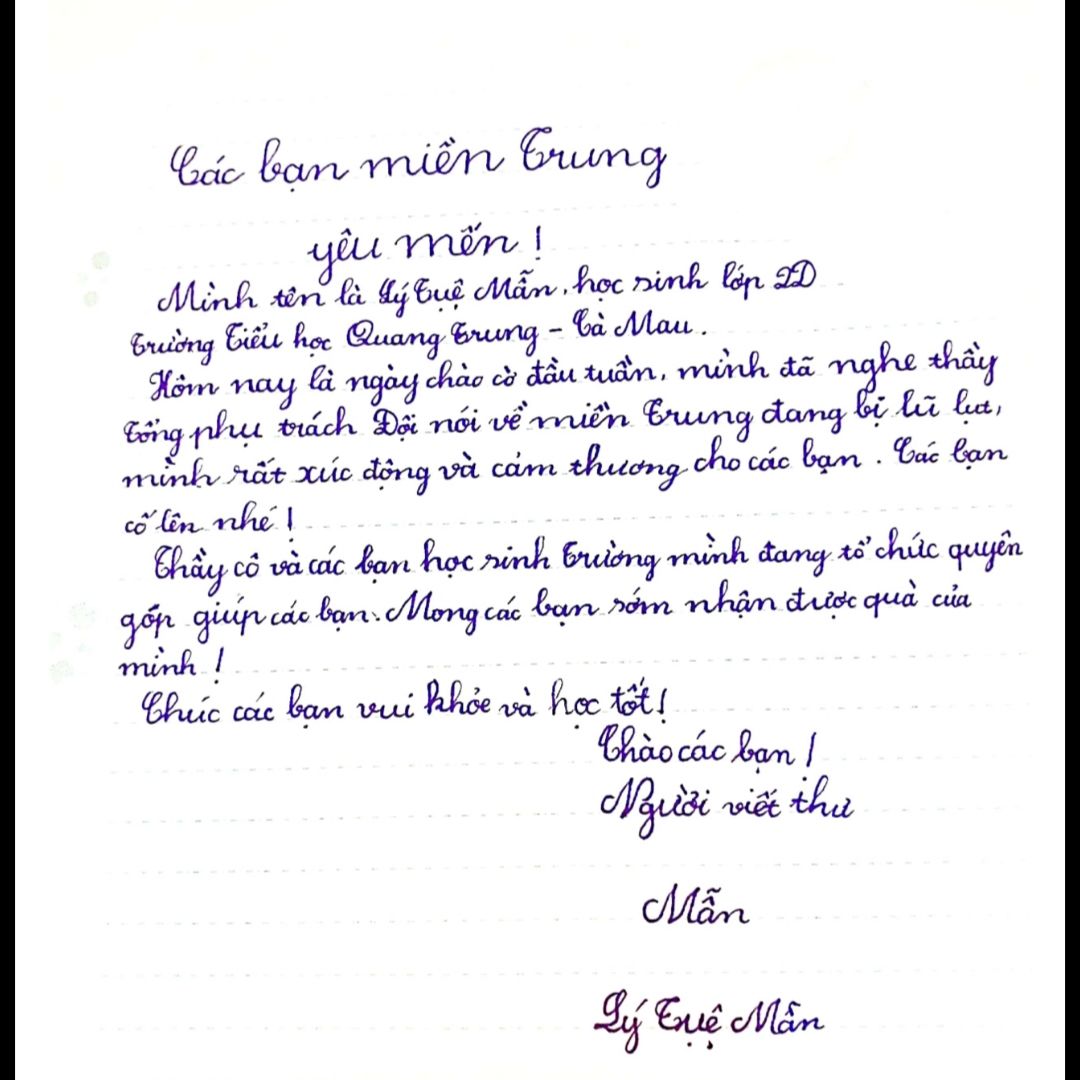 Các bạn miền Trung
yêu mến !
Mình tên là Lý Tuệ Mẫn, học sinh lớp 2D
Trường Tiểu học Quang Trung - Cà Mau.
Hôm nay là ngày chào cờ đầu tuần, mình đã nghe thầy
Tổng phụ trách Đội nói về miền Trung đang bị lũ lụt,
mình rất xúc động và cảm thương cho các bạn. Các bạn
cố lên nhé !
Thầy cô và các bạn học sinh Trường mình đang tổ chức quyên
góp giúp các bạn. Mong các bạn sớm nhận được quà của
mình !
Chúc các bạn vui khỏe và học tốt !
Chào các bạn !
Người viết thư
Mẫn
Lý Tuệ Mẫn